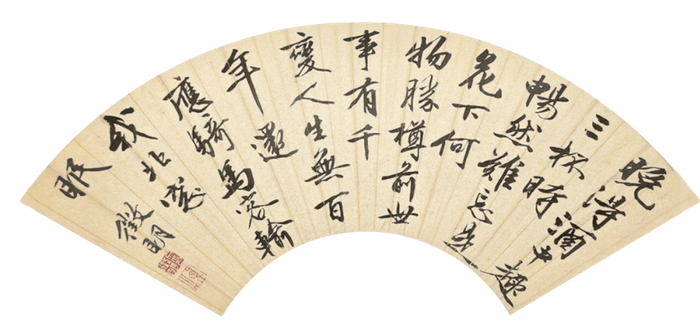 晚得酒中趣
三杯時
暢然難忘是
花下何
物勝樽前世
事有千
變人生無百
年還
應騎馬客輸
我北窓
眠
徵明